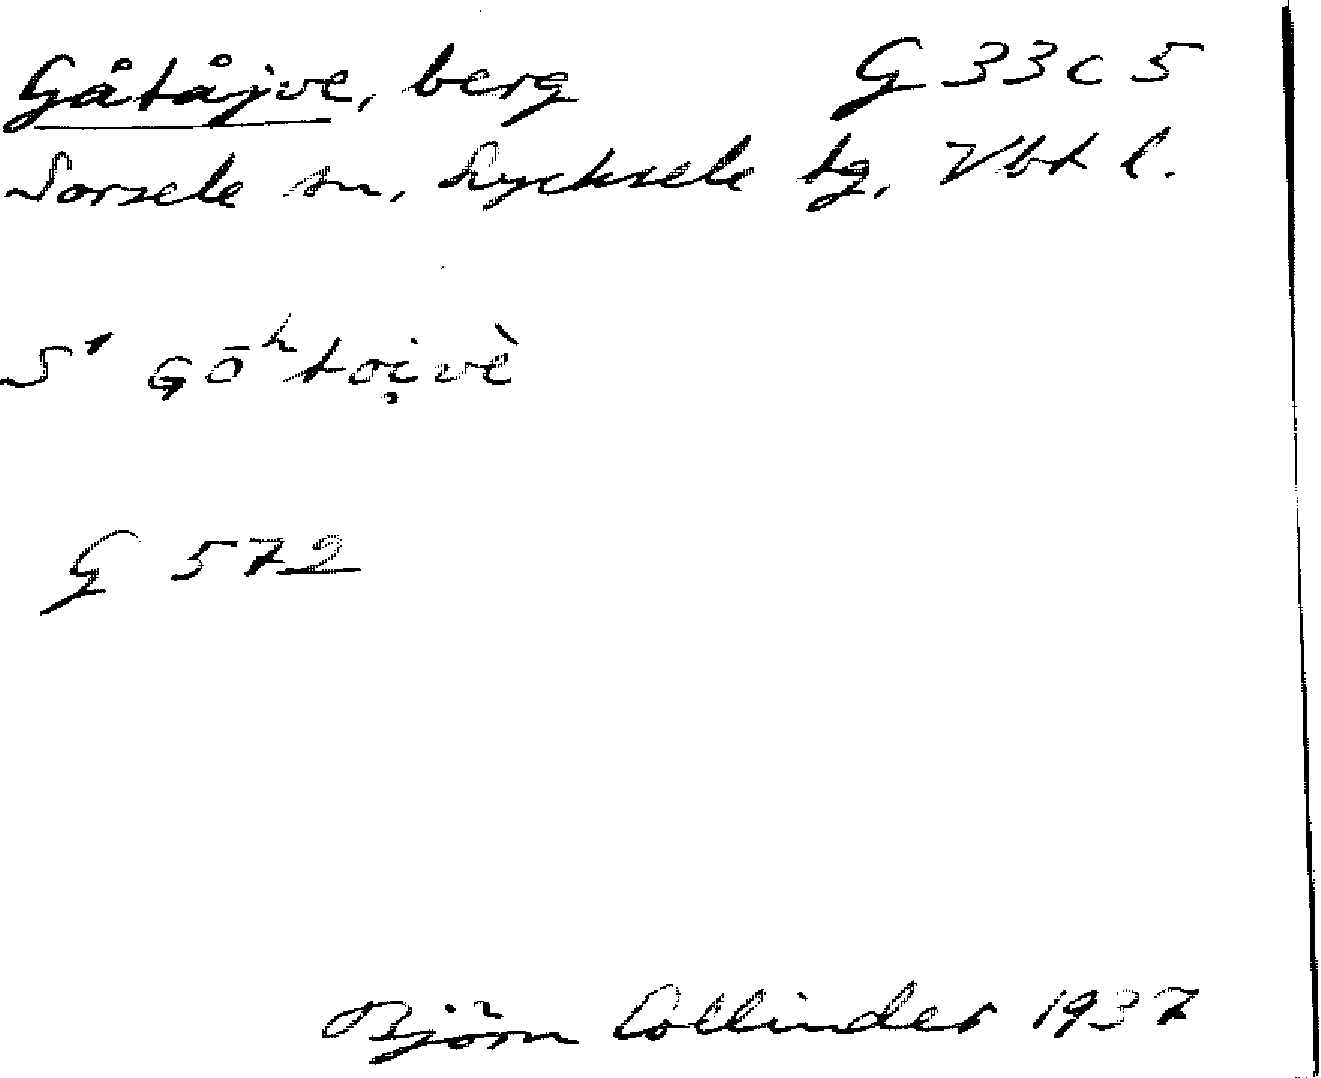 Gåtåjve, berg G 33 c 5
Sorsele sn, Lycksele tg, Vbt l.
S' Gō ͪtoi̮vè
G 572
Björn Collinder 1937